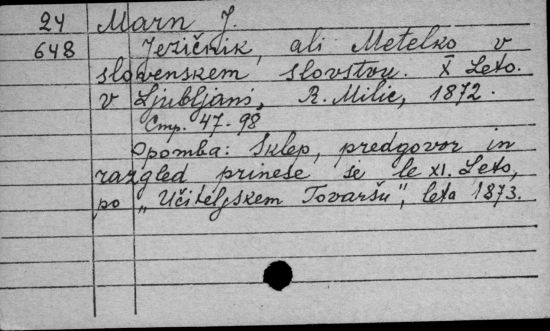 24 Marn J.
648 Jezičnik, ali Metelko v
slovenskem slovstvu. X Leto.
v Ljubljani, R. Milic, 1872.
Стр. 47-98
Opomba: Sklep, predgovor in
razgled prinese se le XI. Leto,
po „Učiteljskem Tovaršu", leta 1873.